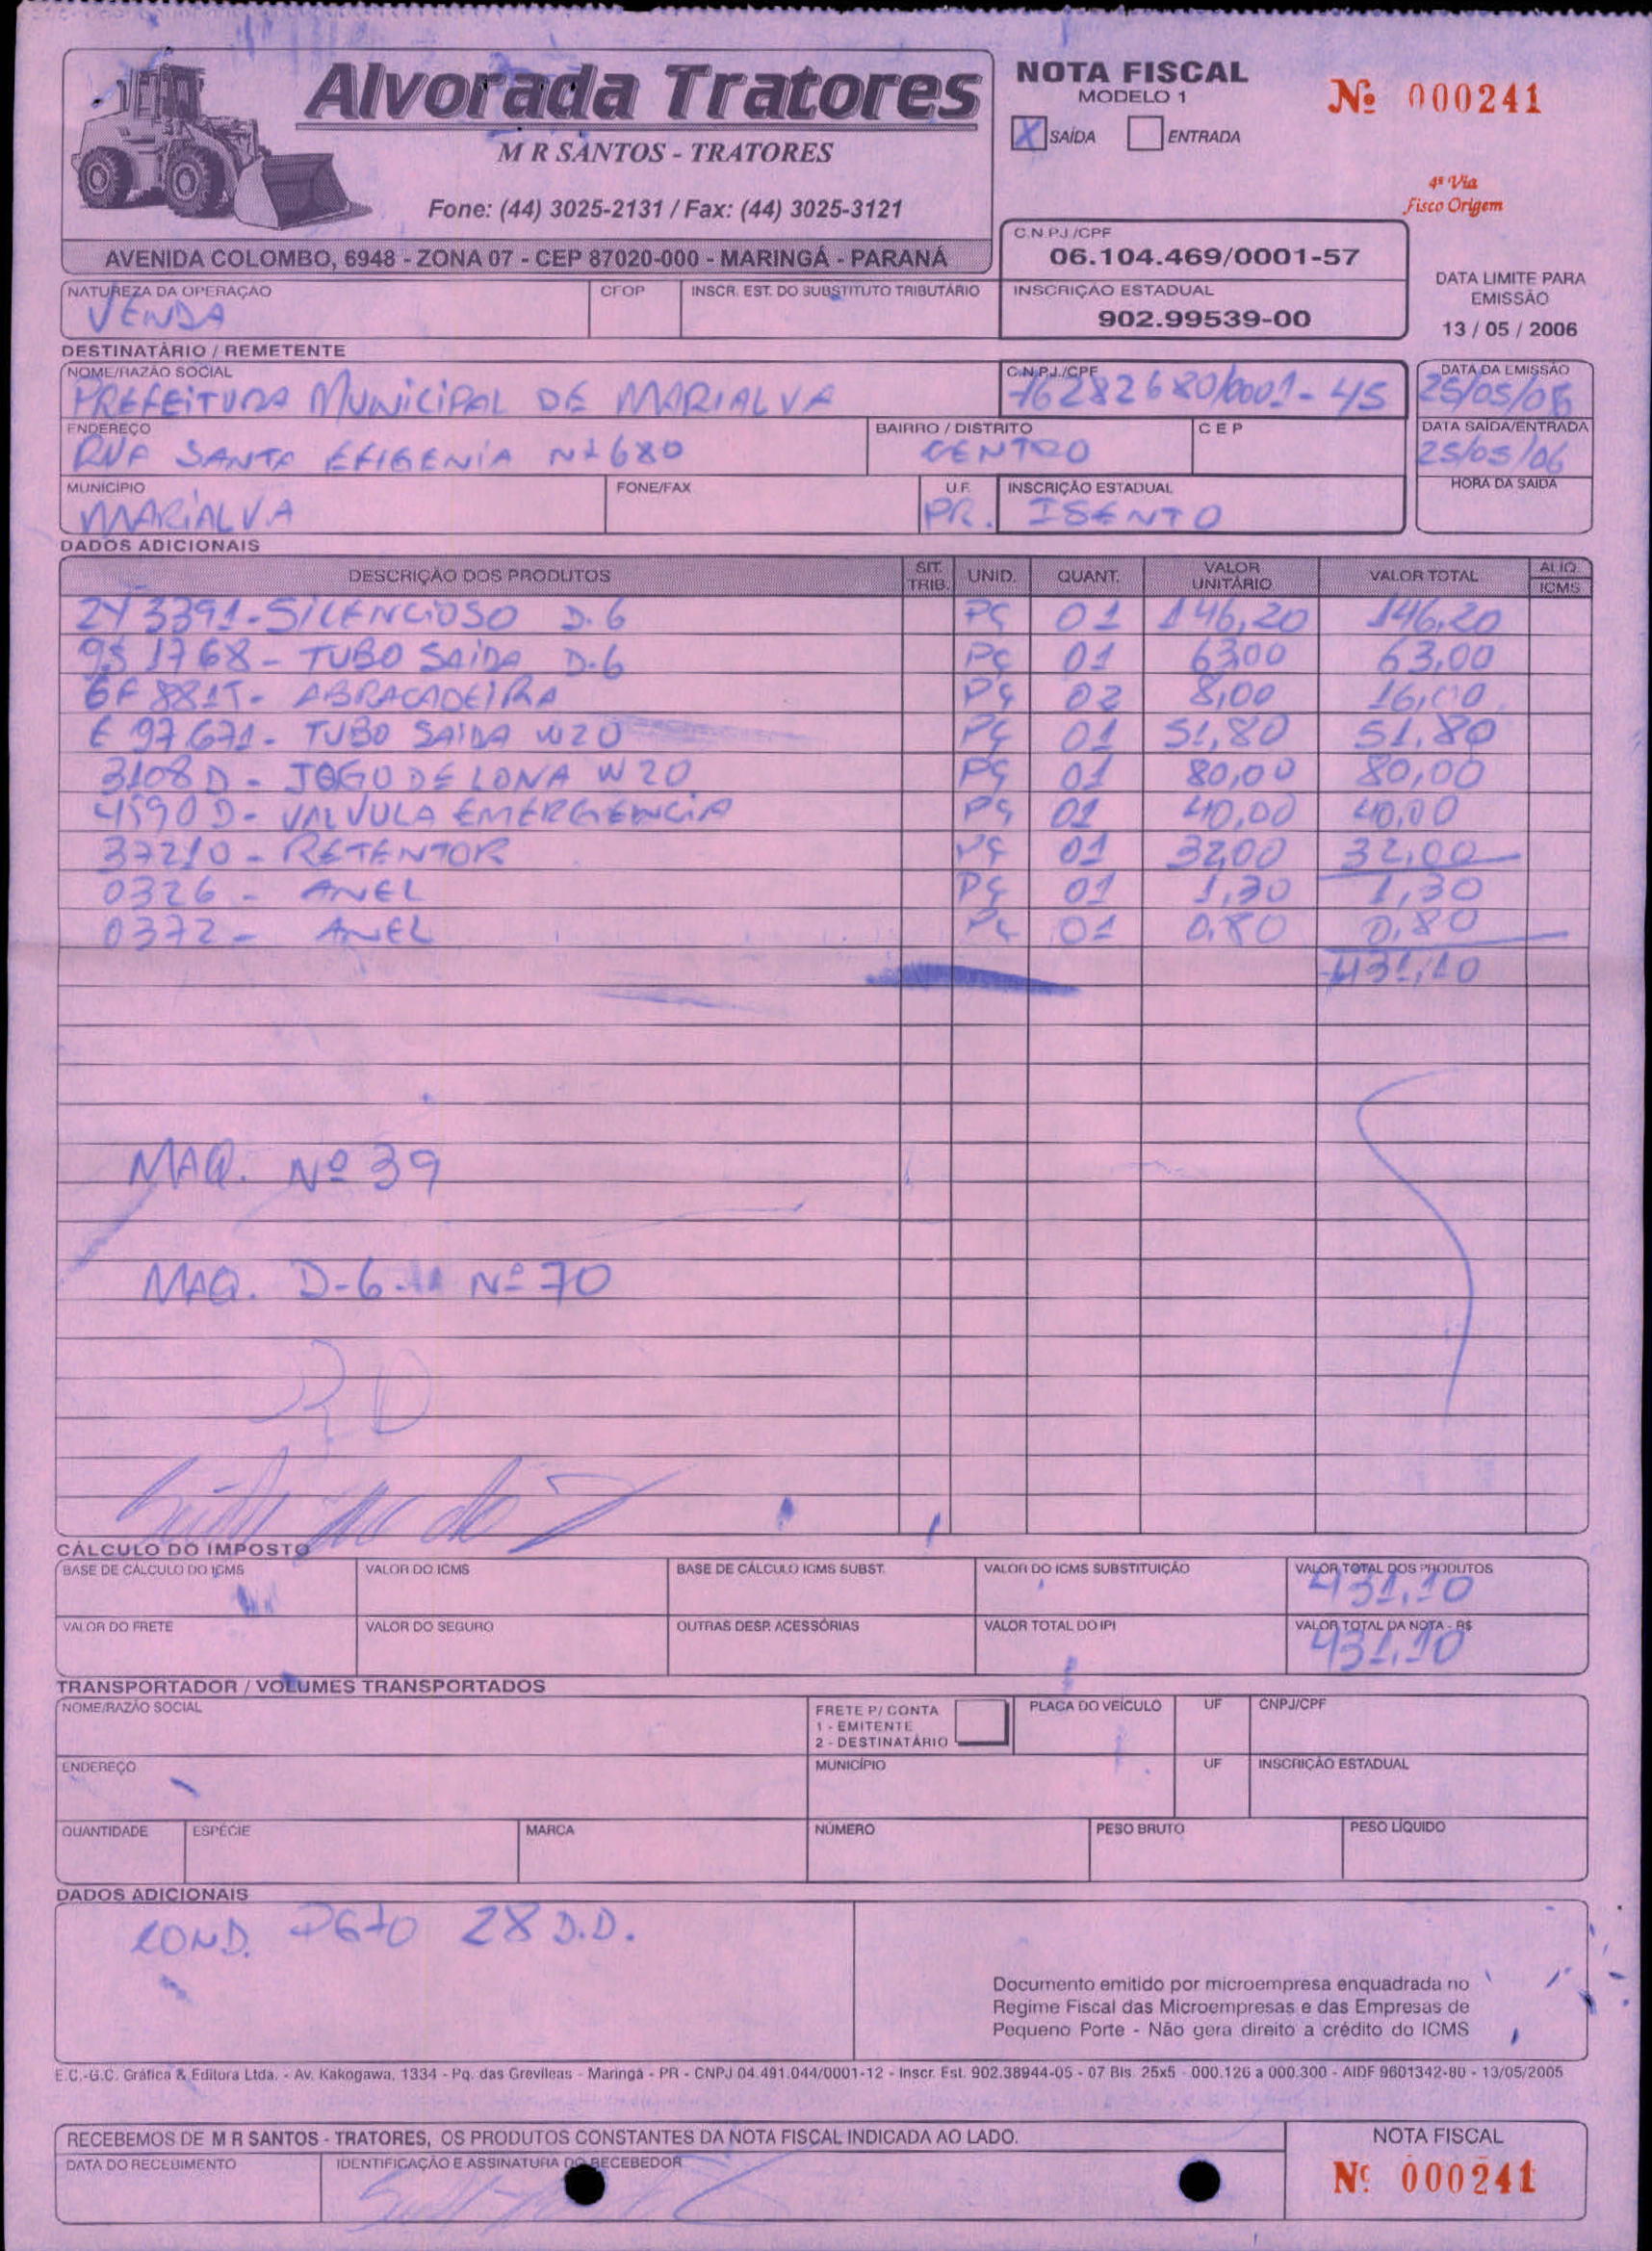 Alvorada Tratores
M R SANTOS - TRATORES
Fone: (44) 3025-2131 / Fax: (44) 3025-3121
AVENIDA COLOMBO, 6948 - ZONA 07 - CEP 87020-000 - MARINGÁ - PARANÁ
NOTA FISCAL
MODELO 1
X SAÍDA ENTRADA
Nº 000241
4ª Via
Fisco Origem
C.N.P.J./CPF
06.104.469/0001-57
INSCRIÇÃO ESTADUAL
902.99539-00
DATA LIMITE PARA
EMISSÃO
13 / 05 / 2006
NATUREZA DA OPERAÇÃO CFOP INSCR. EST. DO SUBSTITUTO TRIBUTÁRIO
VENDA
DESTINATÁRIO / REMETENTE
NOME/RAZÃO SOCIAL C.N.P.J./CPF DATA DA EMISSÃO
PREFEITURA MUNICIPAL DE MARIALVA 76282680/0001-45 25/05/06
ENDEREÇO BAIRRO / DISTRITO CEP DATA SAÍDA/ENTRADA
RUA SANTA EFIGENIA Nº 680 CENTRO 25/05/06
MUNICÍPIO FONE/FAX U.F. INSCRIÇÃO ESTADUAL HORA DA SAÍDA
MARIALVA PR. ISENTO
DADOS ADICIONAIS
DESCRIÇÃO DOS PRODUTOS SIT. TRIB. UNID. QUANT. VALOR UNITÁRIO VALOR TOTAL ALIQ. ICMS
2Y3391-SILENCIOSO D.6 PÇ 01 146,20 146,20
9S 1768- TUBO SAIDA D-6 PÇ 01 63,00 63,00
6F 8815- ABRACADEIRA PÇ 02 8,00 16,00
E 97671- TUBO SAIDA W20 PÇ 01 51,80 51,80
3108 D - JOGO DE LONA W20 PÇ 01 80,00 80,00
4590 D- VALVULA EMERGENCIA PÇ 01 40,00 40,00
37210 - RETENTOR PÇ 01 32,00 32,00
0326 - ANEL PÇ 01 1,30 1,30
0372 - ANEL PÇ 01 0,80 0,80
431,10
MAQ. Nº 39
MAQ. D-6 Nº 70
CÁLCULO DO IMPOSTO
BASE DE CÁLCULO DO ICMS VALOR DO ICMS BASE DE CÁLCULO ICMS SUBST. VALOR DO ICMS SUBSTITUIÇÃO VALOR TOTAL DOS PRODUTOS
431,10
VALOR DO FRETE VALOR DO SEGURO OUTRAS DESP. ACESSÓRIAS VALOR TOTAL DO IPI VALOR TOTAL DA NOTA - R$
431,10
TRANSPORTADOR / VOLUMES TRANSPORTADOS
NOME/RAZÃO SOCIAL FRETE P/ CONTA 1 - EMITENTE 2 - DESTINATÁRIO PLACA DO VEÍCULO UF CNPJ/CPF
ENDEREÇO MUNICÍPIO UF INSCRIÇÃO ESTADUAL
QUANTIDADE ESPÉCIE MARCA NÚMERO PESO BRUTO PESO LÍQUIDO
DADOS ADICIONAIS
COND. PGTO 28 D.D.
Documento emitido por microempresa enquadrada no
Regime Fiscal das Microempresas e das Empresas de
Pequeno Porte - Não gera direito a crédito do ICMS
E.C.-G.C. Gráfica & Editora Ltda. - Av. Kakogawa, 1334 - Pq. das Grevíleas - Maringá - PR - CNPJ 04.491.044/0001-12 - Inscr. Est. 902.38944-05 - 07 Bls. 25x5 - 000.126 a 000.300 - AIDF 9601342-80 - 13/05/2005
RECEBEMOS DE M R SANTOS - TRATORES, OS PRODUTOS CONSTANTES DA NOTA FISCAL INDICADA AO LADO.
DATA DO RECEBIMENTO IDENTIFICAÇÃO E ASSINATURA DO RECEBEDOR
NOTA FISCAL
Nº 000241